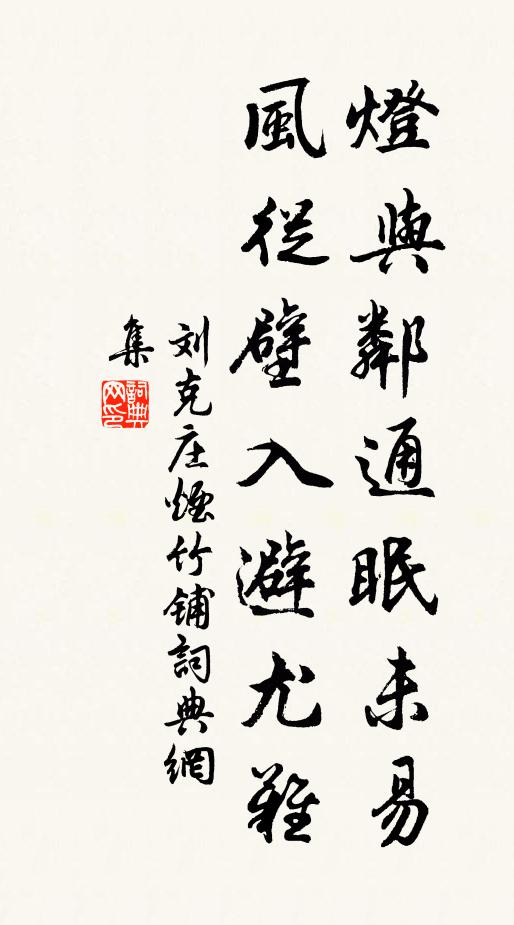 燈與鄰通眠未易
風從壁入避尤難
刘克庄煙竹铺詞典網
集
詞典网印